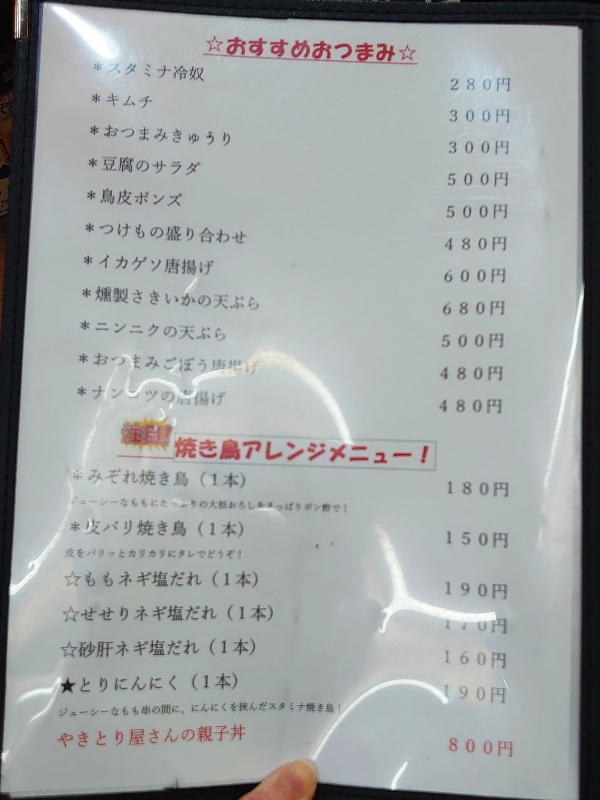 ☆おすすめおつまみ☆
＊スタミナ冷奴 ２８０円
＊キムチ ３００円
＊おつまみきゅうり ３００円
＊豆腐のサラダ ５００円
＊鳥皮ポンズ ５００円
＊つけもの盛り合わせ ４８０円
＊イカゲソ唐揚げ ６００円
＊燻製さきいかの天ぷら ６８０円
＊ニンニクの天ぷら ５００円
＊おつまみごぼう唐揚げ ４８０円
＊ナンコツの唐揚げ ４８０円
注目! 焼き鳥アレンジメニュー！
＊みぞれ焼き鳥（１本） １８０円
ジューシーなももにたっぷりの大根おろしをさっぱりポン酢で！
＊皮パリ焼き鳥（１本） １５０円
皮をパリッとカリカリにタレでどうぞ！
☆ももネギ塩だれ（１本） １９０円
☆せせりネギ塩だれ（１本） １７０円
☆砂肝ネギ塩だれ（１本） １６０円
★とりにんにく（１本） １９０円
ジューシーなもも串の間に、にんにくを挟んだスタミナ焼き鳥！
やきとり屋さんの親子丼 ８００円